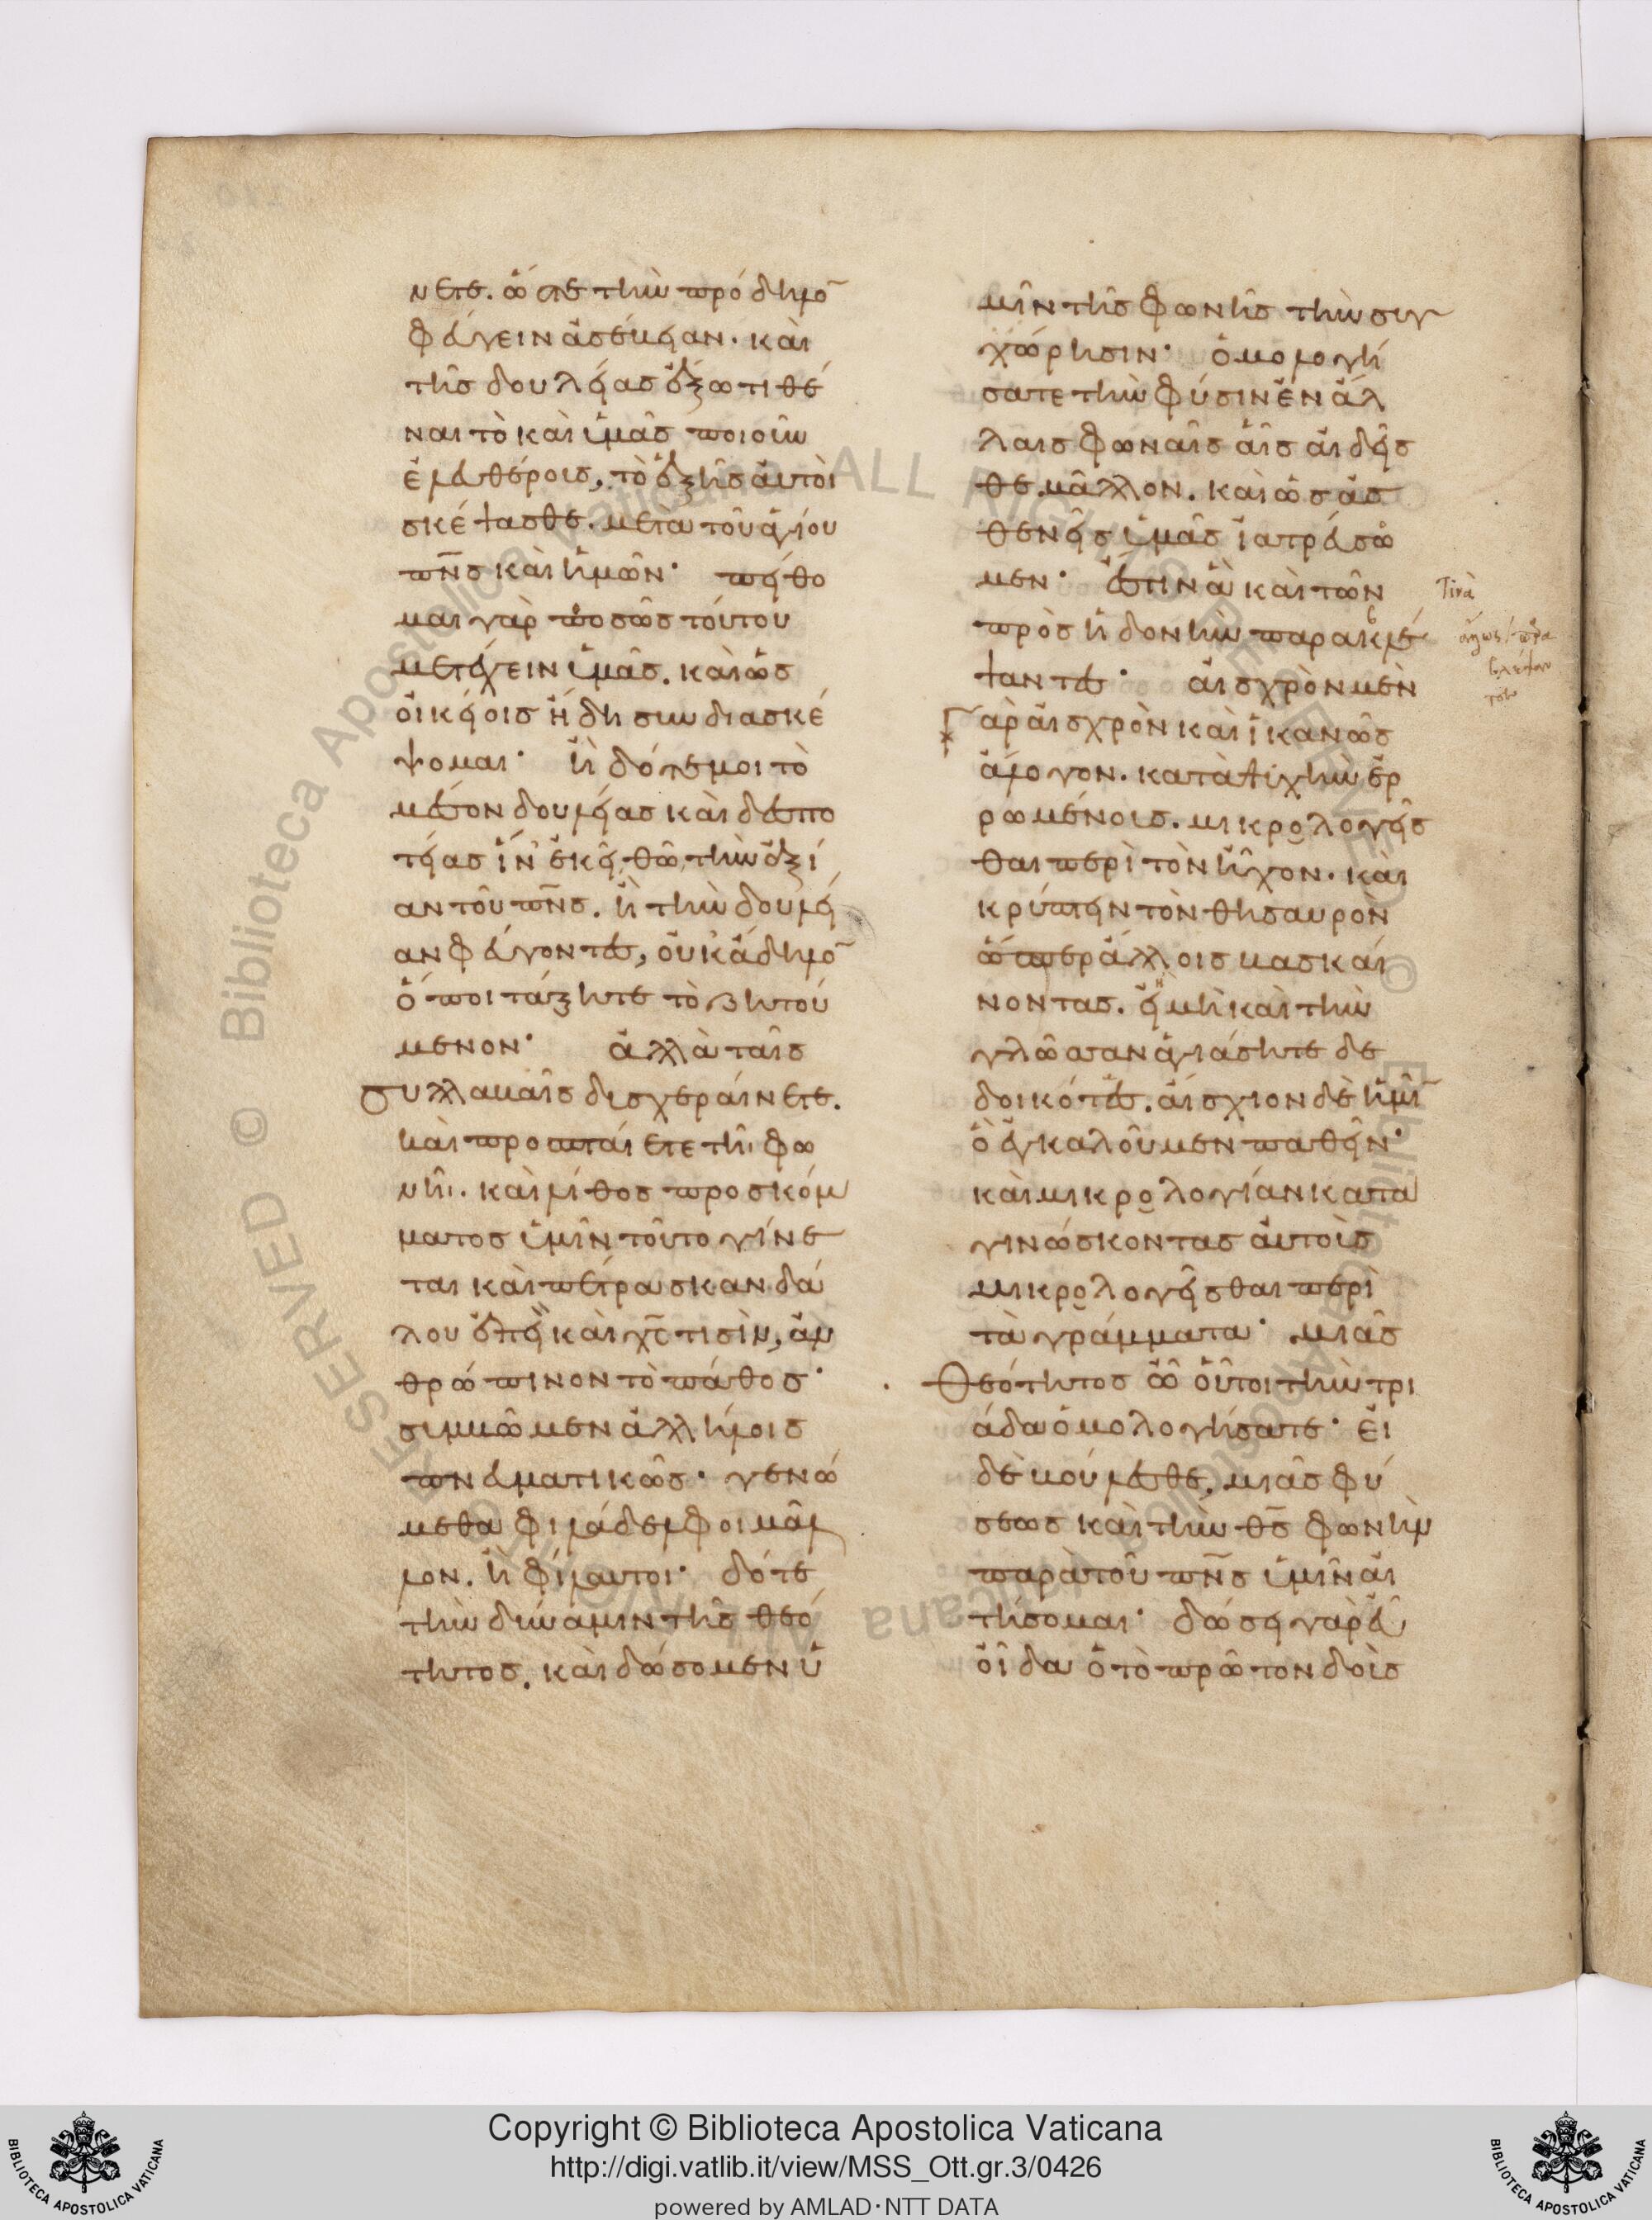 νετε. ὥστε τὴν πρόδηλο̄
φεύγειν ἀσέβειαν. καὶ
τῆς δουλείας ἔξω τιθέ
ναι τὸ καὶ ὑμᾶς ποιοῦν
ἐλευθέροις, τὸ ἑξῆς αὐτοὶ
σκέψασθε. μετὰ τοῦ ἁγίου
πν̅ς καὶ ἡμῶν· πείθο
μαι γὰρ ποσῶς τούτου
μετέχειν ὑμᾶς. καὶ ὡς
οἰκείοις ἤδη συνδιασκέ
ψομαι· ἢ δότε μοι τὸ
μέσον δουλείας καὶ δεσπο
τείας ἵν' ἐκεῖ θῶ τὴν ἀξί
αν τοῦ πν̅ς. ἢ τὴν δουλεί
αν φεύγοντες, οὐκ ἄδηλο̄
ὅποι τάξητε τὸ ζητού
μενον· ἀλλὰ ταῖς
συλλαβαῖς δυσχεραίνετε.
καὶ προσπταίετε τῆι φω
νῆι. καὶ λίθος προσκόμ
ματος ὑμῖν τοῦτο γίνε
ται καὶ πέτρα σκανδά
λου ἐπεὶ καὶ χ̅ς τισὶν, ἀν
θρώπινον τὸ πάθος·
συμβῶμεν ἀλλήλοις
πν̅ευματικῶς· γενώ
μεθα φιλάδελφοι μᾶλ
λον. ἢ φίλαυτοι· δότε
τὴν δύναμιν τῆς θεό
τητος. καὶ δώσομεν ὑ
μῖν τῆς φωνῆς τὴν συγ
χώρησιν· ὁμολογή
σατε τὴν φύσιν ἐν ἄλ
λαις φωναῖς αἷς αἰδεῖσ
θε μᾶλλον. καὶ ὡς ἀσ
θενεῖς ὑμᾶς ἰατρεύσω
μεν· ἔστιν ἃ καὶ τῶν
πρὸς ἡδονὴν παρακλέ
ψαντες· αἰσχρὸν μὲν
γὰρ αἰσχρὸν καὶ ἱκανῶς
ἄλογον. κατὰ ψυχὴν ἐρ
ρωμένοις. μικρολογεῖσ
θαι περὶ τὸν ἦχον. καὶ
κρύπτειν τὸν θησαυρὸν
ὥσπερ ἄλλοις βασκαί
νοντας. ἢ μὴ καὶ τὴν
γλῶσσαν ἁγιάσητε δε
δοικότες. αἴσχιον δὲ ἡμῖ̄
ὃ ἐγκαλοῦμεν παθεῖν·
καὶ μικρολογίαν κατα
γινώσκοντας αὐτοὺς
μικρολογεῖσθαι περὶ
τὰ γράμματα· μιᾶς
Θεότητος ὦ οὗτοι τὴν τρι
άδα ὁμολογήσατε· εἰ
δὲ βούλεσθε, μιᾶς φύ
σεως καὶ τὴν θ̅ς φωνὴν
παρὰ τοῦ πν̅ς ὑμῖν αἰ
τήσομαι· δώσει γὰρ εὖ
οἶδα ὁ τὸ πρῶτον δοὺς